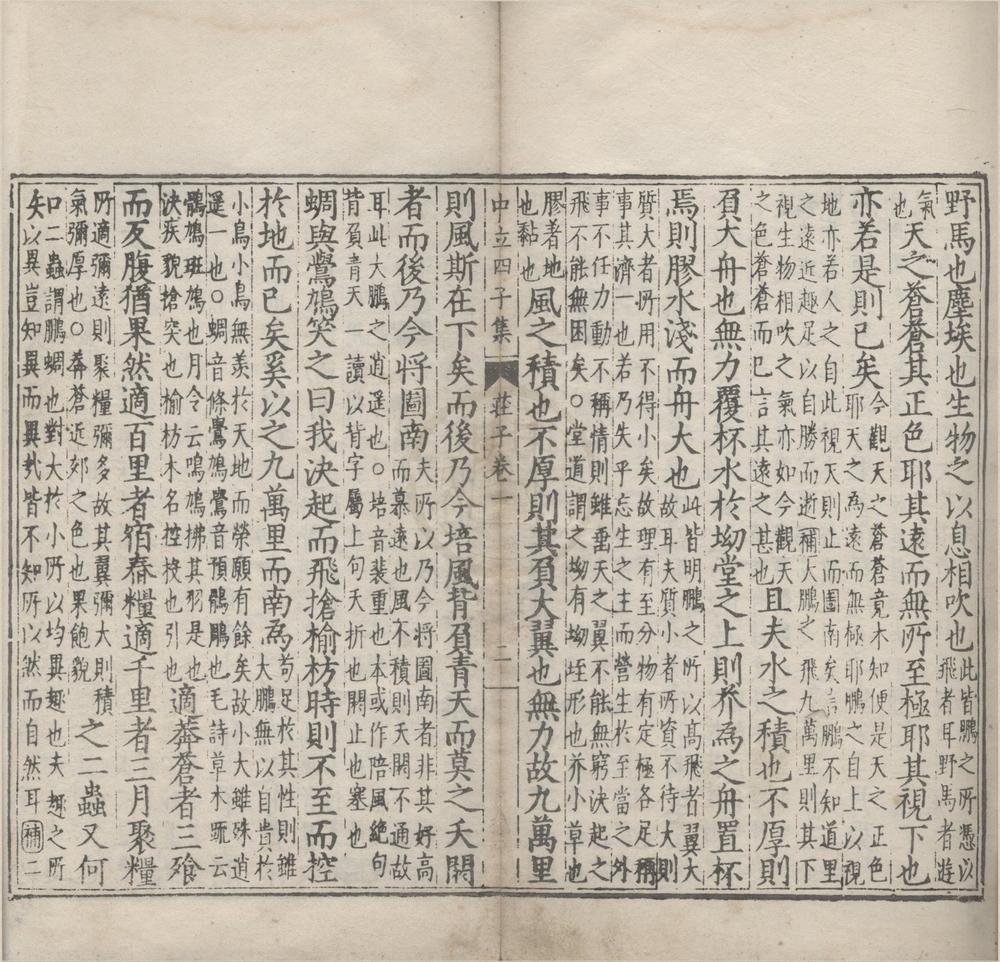 野馬也塵埃也生物之以息相吹也此皆鵬之所憑以
飛者耳野馬者遊
氣
也
天之蒼蒼其正色耶其遠而無所至極耶其視下也
亦若是則已矣今觀天之蒼蒼竟未知便是天之正色
耶天之為遠而無極耶鵬之自上以視
地亦若人之自此視天則止而圖南矣言鵬不知道里
之遠近趣足以自勝而逝補大鵬之飛九萬里則其下
視生物相吹之氣亦如今觀天
之色蒼蒼而已言其遠之甚也
且夫水之積也不厚則
負大舟也無力覆杯水於坳堂之上則芥為之舟置杯
焉則膠水淺而舟大也此皆明鵬之所以高飛者翼大
故耳夫質小者所資不待大則
質大者所用不得小矣故理有至分物有定極各足稱
事其濟一也若乃失乎忘生之主而營生於至當之外
事不任力動不稱情則雖垂天之翼不能無窮決起之
飛不能無困矣○堂道謂之坳有坳垤形也芥小草也
膠者地
也黏也
風之積也不厚則其負大翼也無力故九萬里
中立四子集 莊子卷一 二
則風斯在下矣而後乃今培風背負青天而莫之夭閼
者而後乃今將圖南夫所以乃今將圖南者非其好高
而慕遠也風不積則夭閼不通故
耳此大鵬之逍遙也○培音裴重也本或作陪風絕句
背負青天一讀以背字屬上句夭折也閼止也塞也
蜩與鷽鳩笑之曰我決起而飛搶榆枋時則不至而控
於地而已矣奚以之九萬里而南為苟足於其性則雖
大鵬無以自貴於
小鳥小鳥無羨於天地而榮願有餘矣故小大雖殊逍
遙一也○蜩音條鷽鳩鷽音預鶻鵰也毛詩草木疏云
鶻鳩斑鳩也月令云鳴鳩拂其羽是也
決疾貌搶突也榆枋木名控投也引也
適莽蒼者三飱
而反腹猶果然適百里者宿舂糧適千里者三月聚糧
所適彌遠則聚糧彌多故其翼彌大則積
氣彌厚也○莽蒼近郊之色也果飽貌
之二蟲又何
口二蟲謂鵬蜩也對大於小所以均異趣也夫趣之所
矣以異豈知異而異哉皆不知所以然而自然耳補二